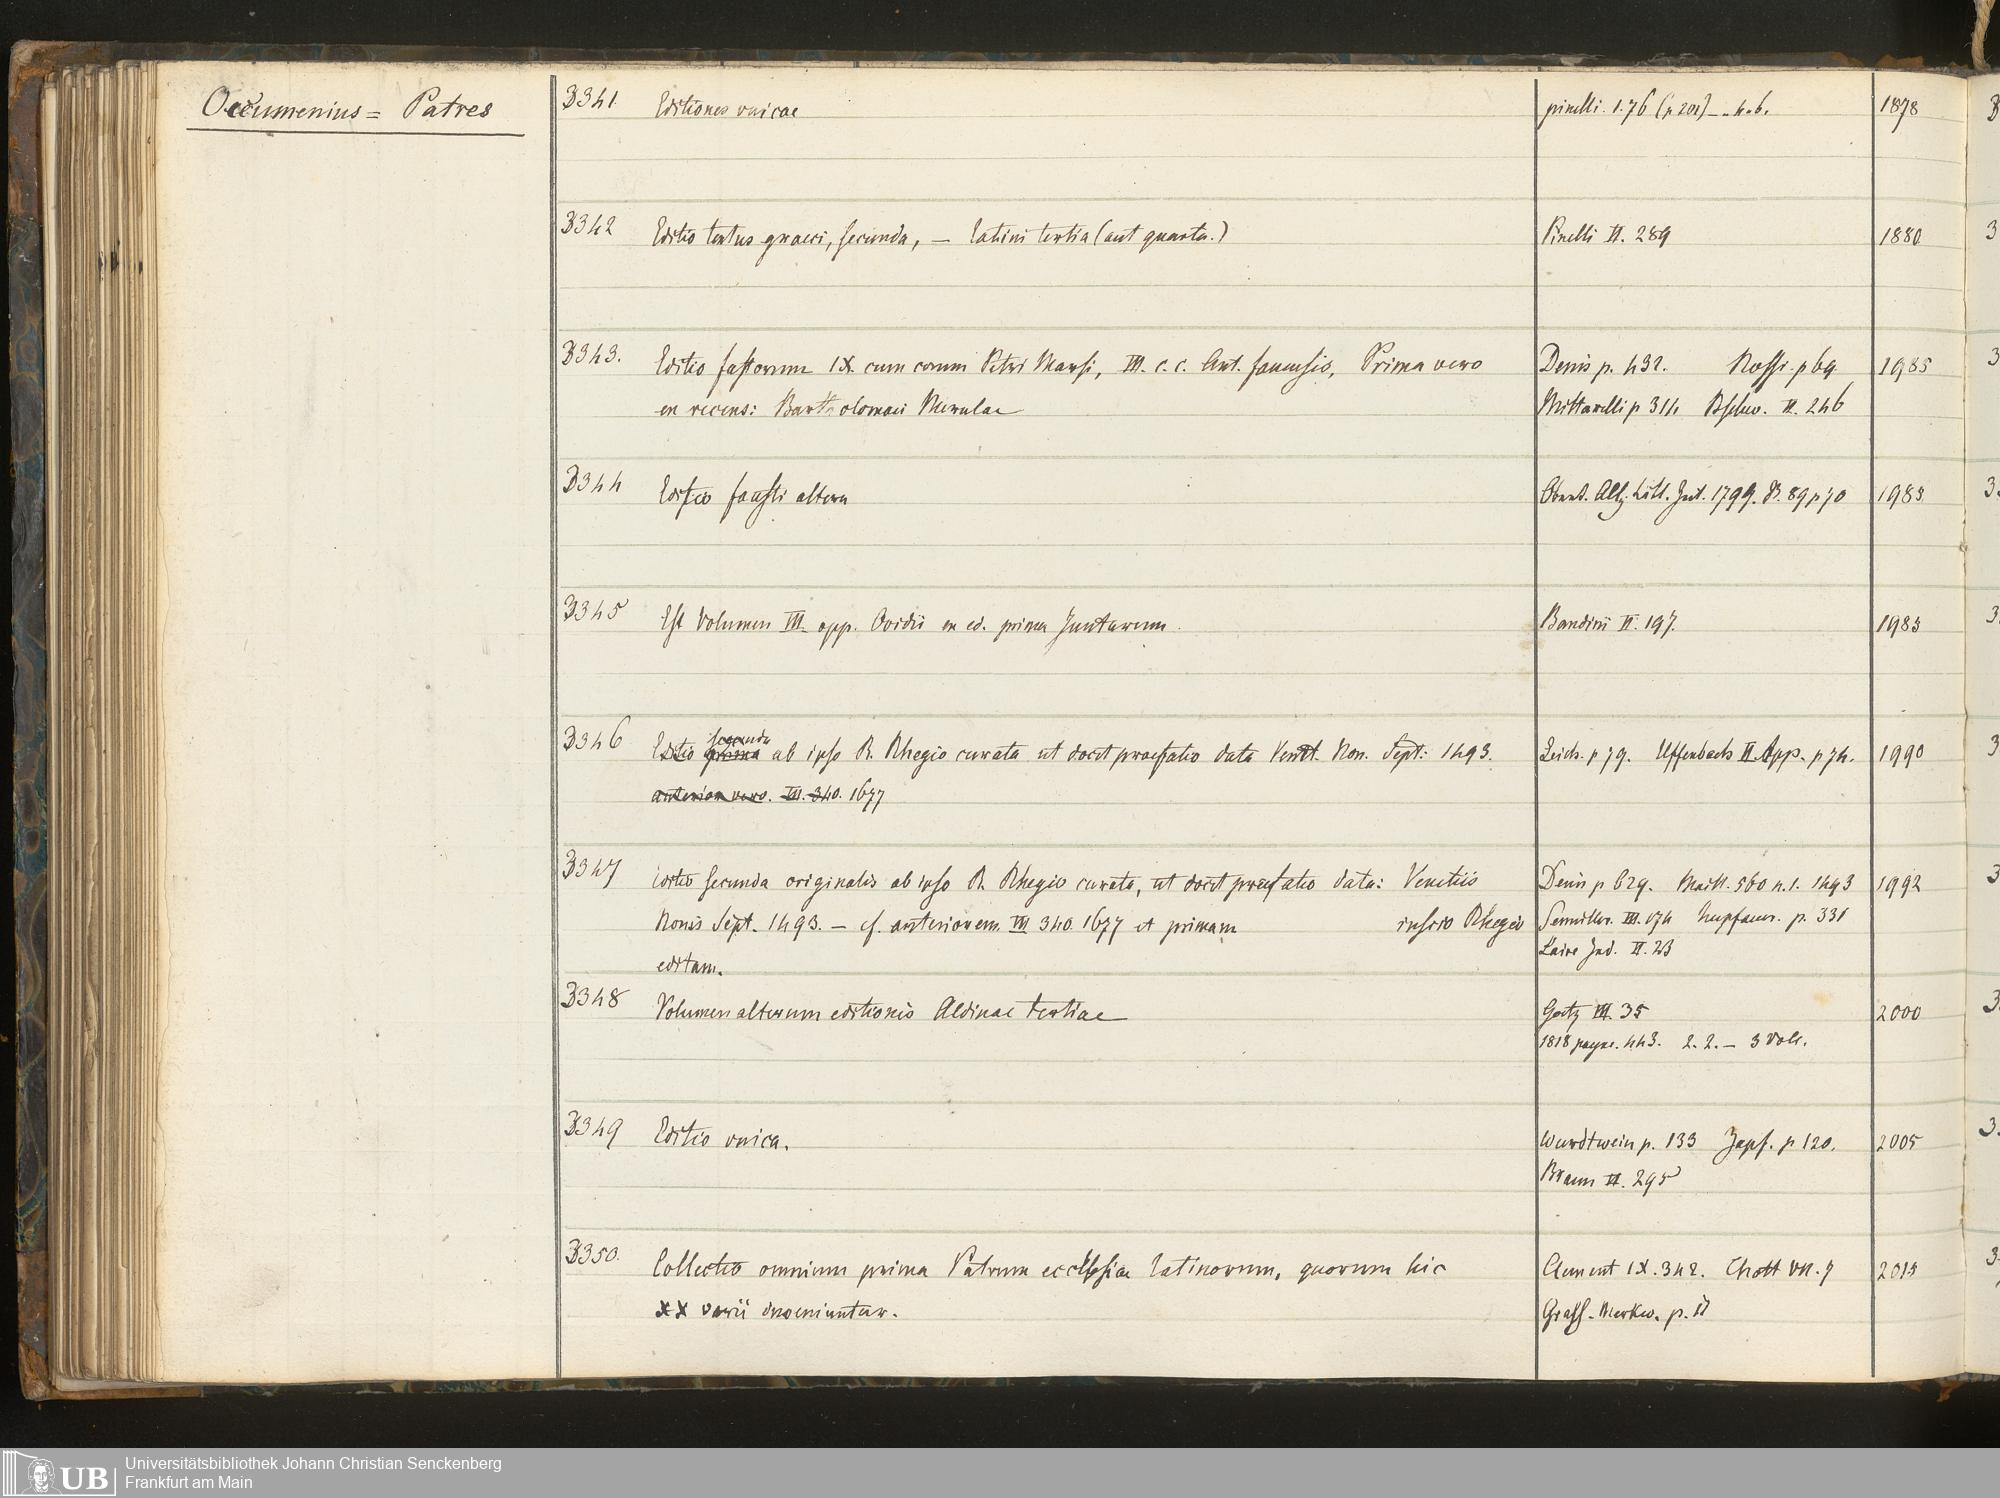 Oecumenius = Patres
3341. Editiones unicae pinelli. 1.76 (p 201) 1878
3342 Editio textus graeci, secunda, — latini tertia (aut quarta.) Pinelli II. 289 1880
3343. Editio fastorum IX. cum comm Petri Marsi, III. c. c. Ant. fanensis, Prima vero Denis p. 432. Rossi p 69 1985
en recens: Bartholomaei Merulae Mittarelli p 314 II. 246
3344 Editio fausti altera Litt. 1799. 89 p 70 1985
3345 Est Volumen III. opp. Ovidii en ed. prima Juntarum. Bandini II. 197. 1985
3346 Editio secunda ab ipso R. Rhegio curata ut docet praefatio data Venet. Non. Sept: 1493. Leich. p 79. Uffenbach II. App. p 74. 1990
anteriorem vero. III. 340. 1677
3347 Editio secunda originalis ab ipso R. Rhegio curata, ut docet praefatio data: Venetiis Denis p 629. Maitt. 560 n. 1. 1493 1992
Nonis Sept. 1493. — cf. anteriorem III 340. 1677 et primam inscio Rhegio III. 174 p. 331
editam. Laire Ind. II. 23
3348 Volumen alterum editionis Aldinae tertiae Goetz III. 35 2000
1818 payne. 443. 2. 2. — 3 Vols.
3349 Editio unica. Wurdtwein p. 133 Zapf. p 120. 2005
Braun II. 295
3350. Collectio omnium prima Patrum ecclesiae latinorum, quorum hic Clement IX. 342. VII. 7 2015
XX varii inveniuntur.
Universitätsbibliothek Johann Christian Senckenberg
UB
Frankfurt am Main